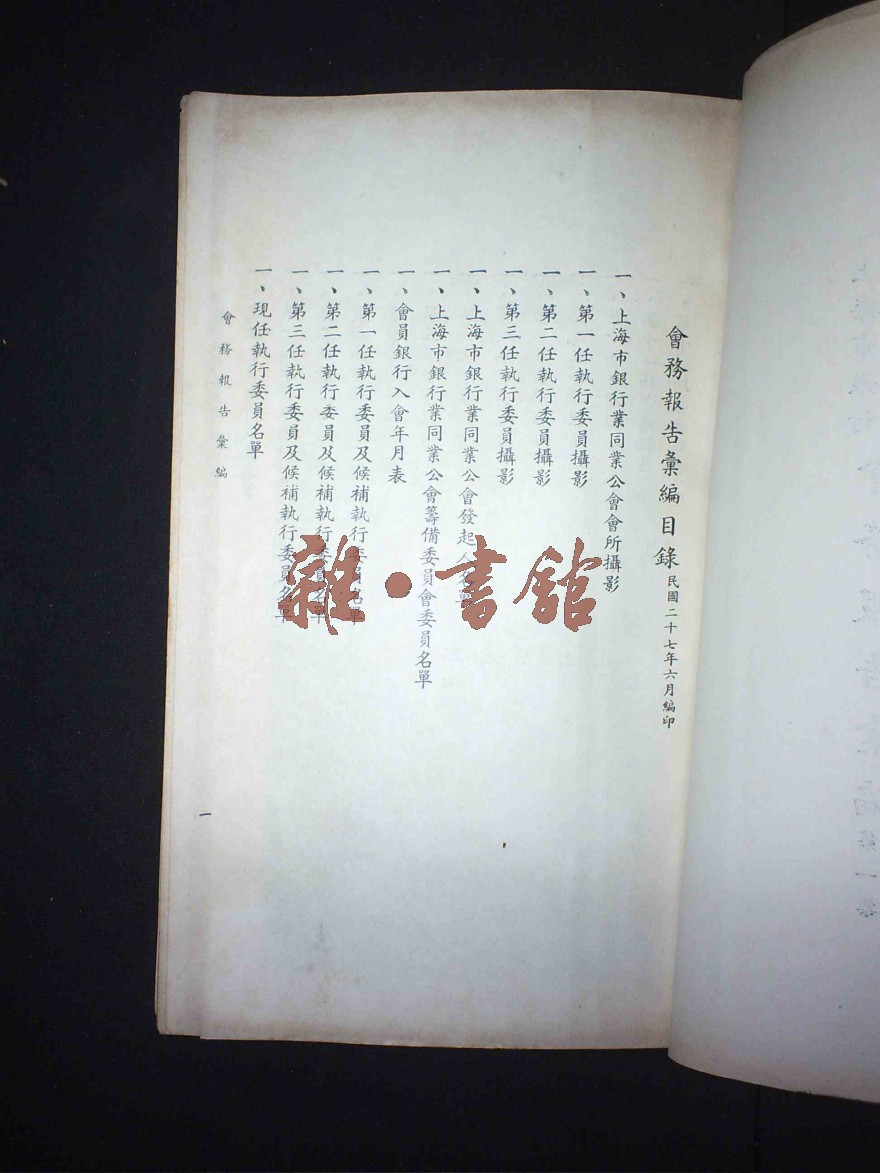 會務報告彙編目錄 民國二十七年六月編印
一、上海市銀行業同業公會會所攝影
一、第一任執行委員攝影
一、第二任執行委員攝影
一、第三任執行委員攝影
一、上海市銀行業同業公會發起人名單
一、上海市銀行業同業公會籌備委員會委員名單
一、會員銀行入會年月表
一、第一任執行委員及候補執行委員名單
一、第二任執行委員及候補執行委員名單
一、第三任執行委員及候補執行委員名單
一、現任執行委員名單
會務報告彙編
一
雜·書館